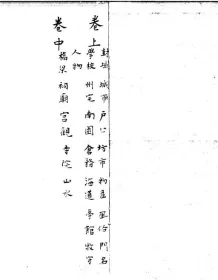 卷上
封域 城市 戶口 坊市 物產 風俗 門名
學校 州宅 南園 倉務 海道 亭館 牧守
人物
卷中
橋梁 祠廟 宮觀 寺院 山水